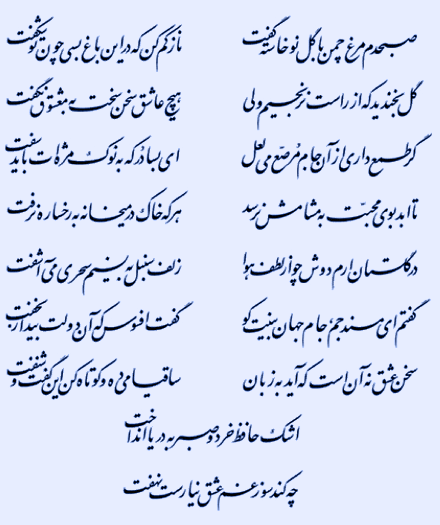 صبحدم مرغ چمن با گل نوخاسته گفت ناز کم کن که در این باغ بسی چون تو شکفت
گل بخندید که از راست نرنجیم ولی هیچ عاشق سخن سخت به معشوق نگفت
گر طمع داری از آن جام مرصع می لعل ای بسا در که به نوک مژه‌ات باید سفت
تا ابد بوی محبت به مشامش نرسد هر که خاک در میخانه به رخساره نرفت
در گلستان ارم دوش چو از لطف هوا زلف سنبل به نسیم سحری می‌آشفت
گفتم ای مسند جم جام جهان بینت کو گفت افسوس که آن دولت بیدار بخفت
سخن عشق نه آن است که آید به زبان ساقیا می ده و کوتاه کن این گفت و شنفت
اشک حافظ خرد و صبر به دریا انداخت
چه کند سوز غم عشق نیارست نهفت